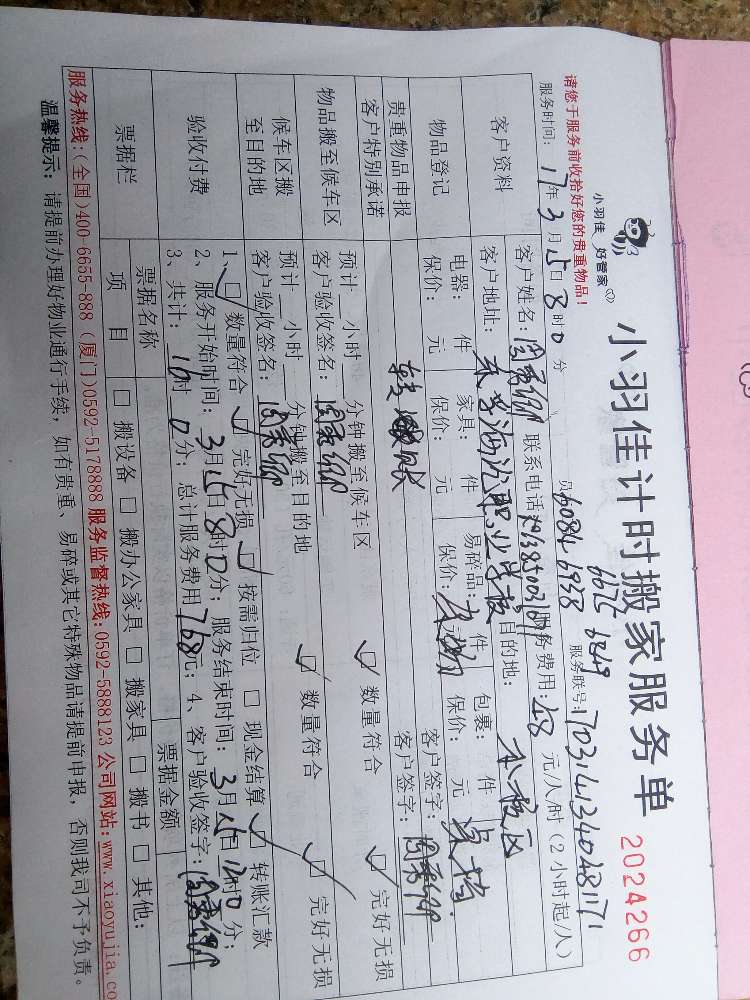 小羽佳计时搬家服务单
2024266
小羽佳 好管家
请您于服务前收拾好您的贵重物品!
6675 6849
6084 6938
服务时间: 17年3月15日8时0分
服务联号:
客户资料
客户姓名:
联系电话
服务费用: 48 元/人/时(2小时起/人)
客户地址:
目的地: 本校区
物品登记
电器: 件 家具: 件 易碎品: 件 包裹: 件
保价: 元 保价: 元 保价: 元 保价: 元
客户签字:
贵重物品申报
客户特别承诺
转账
客户签字:
物品搬至候车区
预计: 小时 分钟搬至候车区 数量符合 完好无损
客户验收签名:
候车区搬
至目的地
预计: 小时 分钟搬至目的地 数量符合 完好无损
客户验收签名:
验收付费
1、 数量符合 完好无损 按需归位 现金结算 转账汇款
2、服务开始时间: 3月15日8时0分; 服务结束时间: 3月15日12时0分;
3、共计: 16时0分; 总计服务费用768元; 4、客户验收签字:
票据栏
票据名称 票据金额
项目 搬设备 搬办公家具 搬家具 搬书 其他:
服务热线:(全国)400-6655-888 (厦门)0592-5178888 服务监督热线:0592-5888123 公司网站:www.xiaoyujia.co
温馨提示: 请提前办理好物业通行手续, 如有贵重、易碎或其它特殊物品请提前申报, 否则我司不予负责。